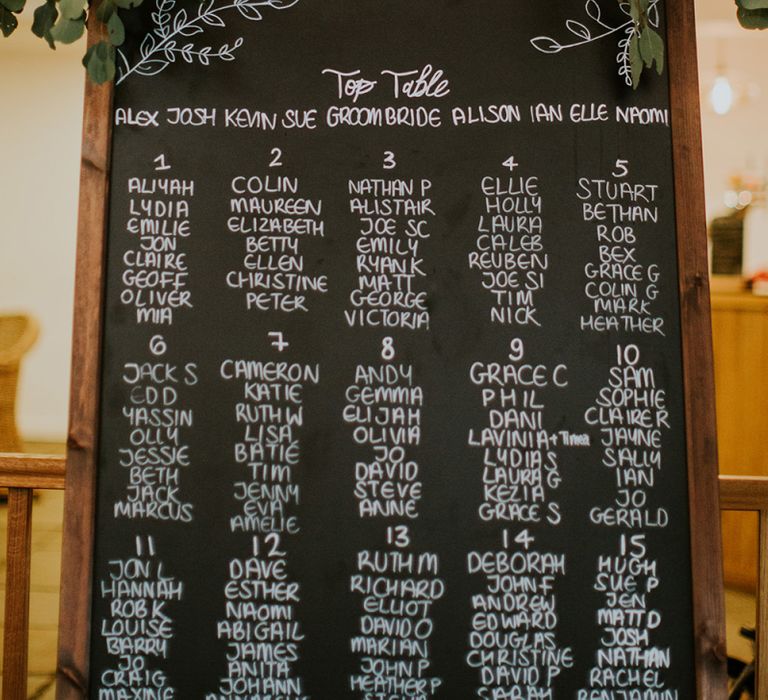 Top Table
ALEX JOSH KEVIN SUE GROOM BRIDE ALISON IAN ELLE NAOMI
1
ALIYAH
LYDIA
EMILIE
JON
CLAIRE
GEOFF
OLIVER
MIA
2
COLIN
MAUREEN
ELIZABETH
BETTY
ELLEN
CHRISTINE
PETER
3
NATHAN P
ALISTAIR
JOE SC
EMILY
RYAN K
MATT
GEORGE
VICTORIA
4
ELLIE
HOLLY
LAURA
CALEB
REUBEN
JOE SI
TIM
NICK
5
STUART
BETHAN
ROB
BEX
GRACE G
COLIN G
MARK
HEATHER
6
JACK S
EDD
YASSIN
OLLY
JESSIE
BETH
JACK
MARCUS
7
CAMERON
KATIE
RUTH W
LISA
BATIE
TIM
JENNY
EVA
AMELIE
8
ANDY
GEMMA
ELIJAH
OLIVIA
JO
DAVID
STEVE
ANNE
9
GRACE C
PHIL
DANI
LAVINIA + Timea
LYDIA S
LAURA G
KEZIA
GRACE S
10
SAM
SOPHIE
CLAIRE R
JAYNE
SALLY
IAN
JO
GERALD
11
JON L
HANNAH
ROB K
LOUISE
BARRY
JO
CRAIG
MAXINE
12
DAVE
ESTHER
NAOMI
ABIGAIL
JAMES
ANITA
JOHANN
13
RUTH M
RICHARD
ELLIOT
DAVID O
MARIAN
JOHN P
HEATHER P
14
DEBORAH
JOHN F
ANDREW
EDWARD
DOUGLAS
CHRISTINE
DAVID P
SARAH
15
HUGH
SUE P
JEN
MATT D
JOSH
NATHAN
RACHEL